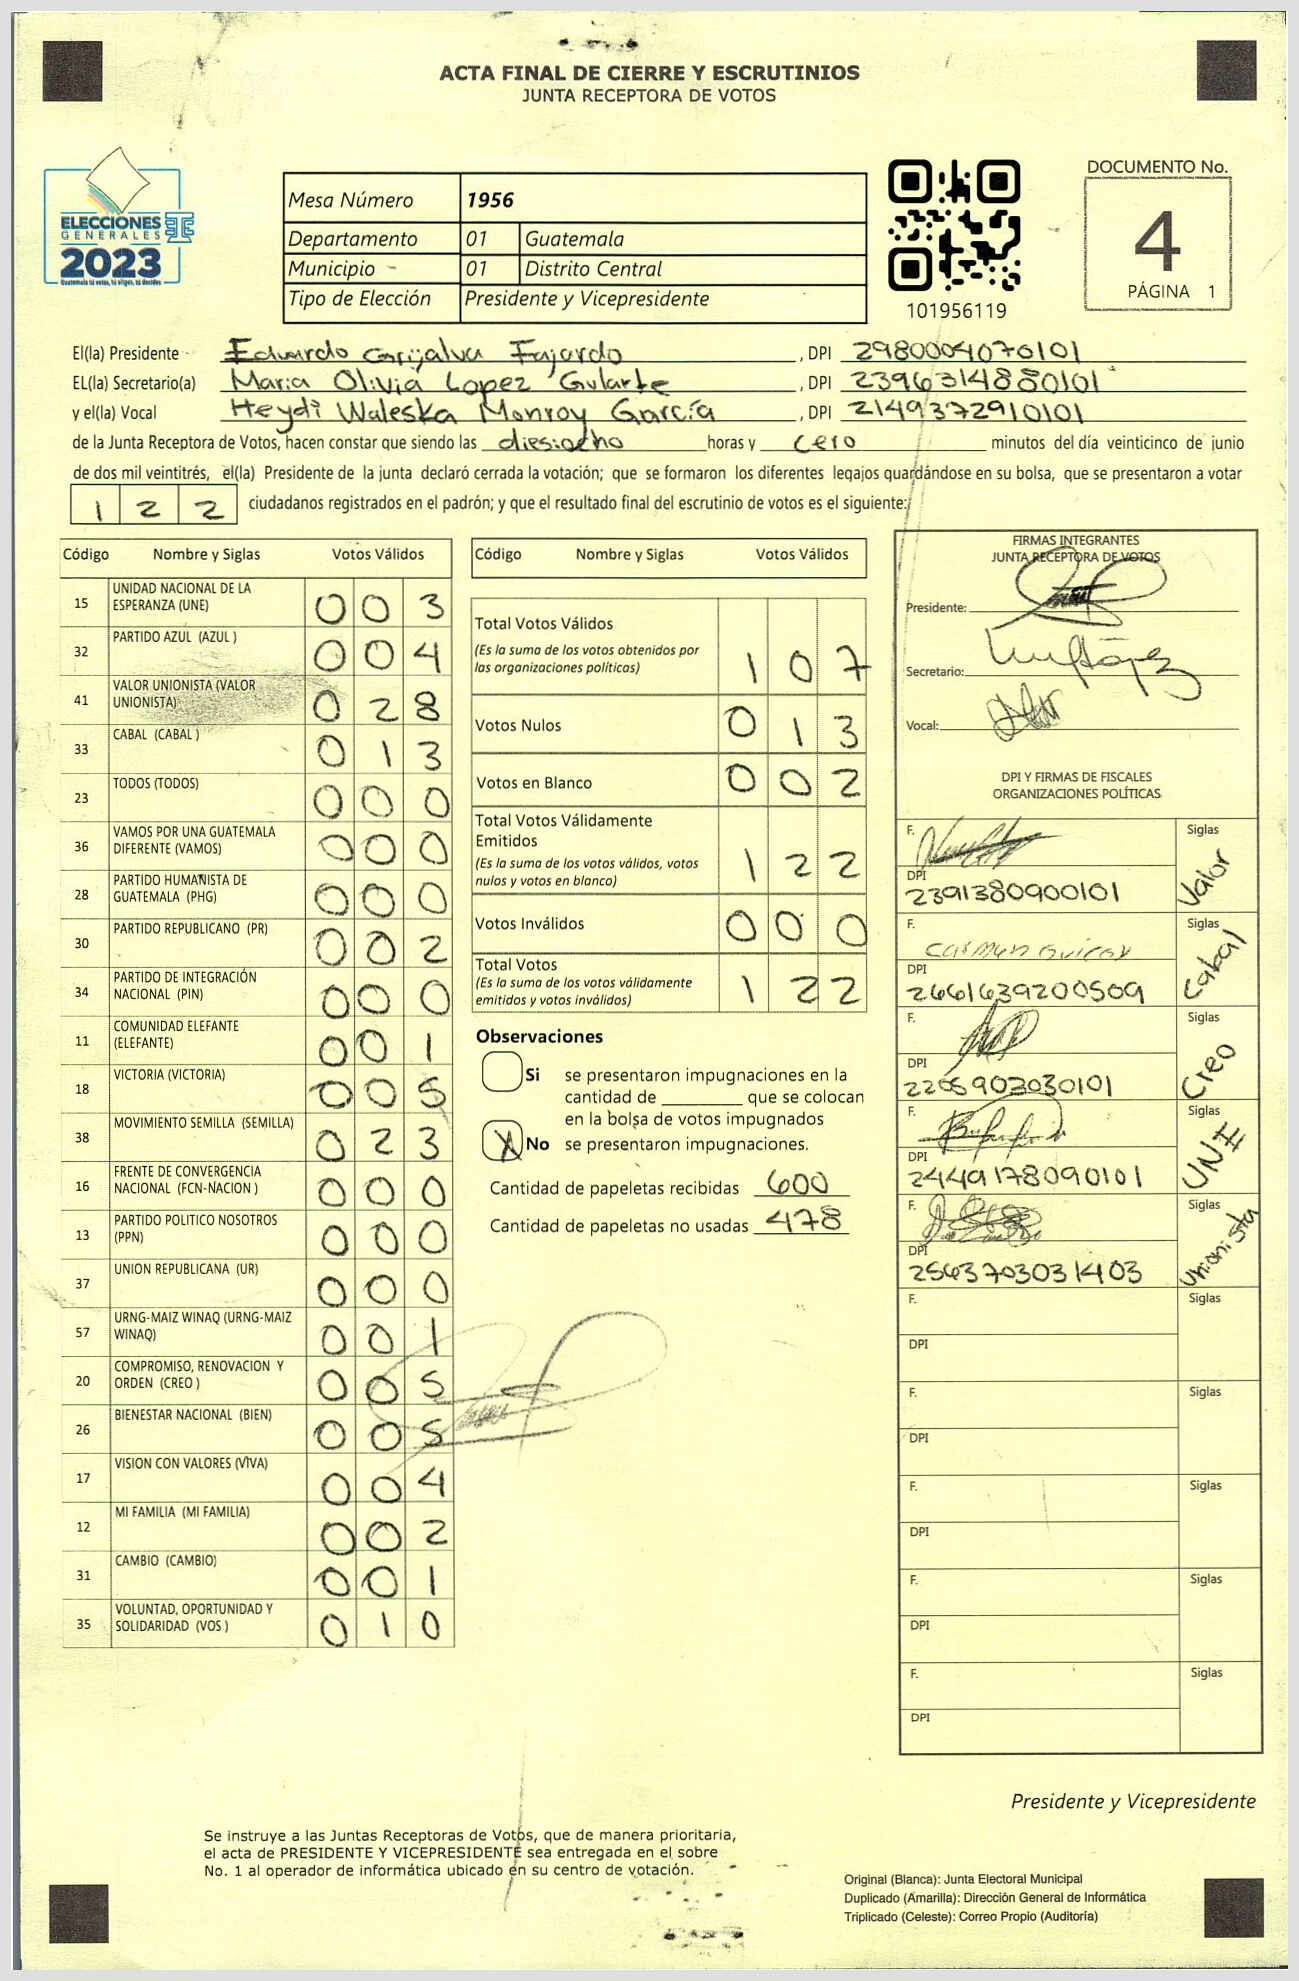 ACTA FINAL DE CIERRE Y ESCRUTINIOS
JUNTA RECEPTORA DE VOTOS
ELECCIONES
GENERALES
2023
Guatemala tú votas, tú eliges, tú decides
Mesa Número 1956
Departamento 01 Guatemala
Municipio 01 Distrito Central
Tipo de Elección Presidente y Vicepresidente
101956119
DOCUMENTO No.
4
PÁGINA 1
El(la) Presidente Eduardo Grijalva Fajardo, DPI 2980004070101
EL(la) Secretario(a) Maria Olivia Lopez Gularte, DPI 2396314880101
y el(la) Vocal Heydi Waleska Monroy García, DPI 2149372910101
de la Junta Receptora de Votos, hacen constar que siendo las diesiocho horas y cero minutos del día veinticinco de junio
de dos mil veintitrés, el(la) Presidente de la junta declaró cerrada la votación; que se formaron los diferentes legajos guardándose en su bolsa, que se presentaron a votar
1 2 2 ciudadanos registrados en el padrón; y que el resultado final del escrutinio de votos es el siguiente:
Código Nombre y Siglas Votos Válidos
15 UNIDAD NACIONAL DE LA ESPERANZA (UNE) 0 0 3
32 PARTIDO AZUL (AZUL ) 0 0 4
41 VALOR UNIONISTA (VALOR UNIONISTA) 0 2 8
33 CABAL (CABAL ) 0 1 3
23 TODOS (TODOS) 0 0 0
36 VAMOS POR UNA GUATEMALA DIFERENTE (VAMOS) 0 0 0
28 PARTIDO HUMANISTA DE GUATEMALA (PHG) 0 0 0
30 PARTIDO REPUBLICANO (PR) 0 0 2
34 PARTIDO DE INTEGRACIÓN NACIONAL (PIN) 0 0 0
11 COMUNIDAD ELEFANTE (ELEFANTE) 0 0 1
18 VICTORIA (VICTORIA) 0 0 5
38 MOVIMIENTO SEMILLA (SEMILLA) 0 2 3
16 FRENTE DE CONVERGENCIA NACIONAL (FCN-NACION ) 0 0 0
13 PARTIDO POLITICO NOSOTROS (PPN) 0 0 0
37 UNION REPUBLICANA (UR) 0 0 0
57 URNG-MAIZ WINAQ (URNG-MAIZ WINAQ) 0 0 1
20 COMPROMISO, RENOVACION Y ORDEN (CREO ) 0 0 5
26 BIENESTAR NACIONAL (BIEN) 0 0 5
17 VISION CON VALORES (VIVA) 0 0 4
12 MI FAMILIA (MI FAMILIA) 0 0 2
31 CAMBIO (CAMBIO) 0 0 1
35 VOLUNTAD, OPORTUNIDAD Y SOLIDARIDAD (VOS ) 0 1 0
Código Nombre y Siglas Votos Válidos
Total Votos Válidos 1 0 7
(Es la suma de los votos obtenidos por
las organizaciones políticas)
Votos Nulos 0 1 3
Votos en Blanco 0 0 2
Total Votos Válidamente
Emitidos 1 2 2
(Es la suma de los votos válidos, votos
nulos y votos en blanco)
Votos Inválidos 0 0 0
Total Votos 1 2 2
(Es la suma de los votos válidamente
emitidos y votos inválidos)
Observaciones
Si se presentaron impugnaciones en la
cantidad de ________ que se colocan
en la bolsa de votos impugnados
X No se presentaron impugnaciones.
Cantidad de papeletas recibidas 600
Cantidad de papeletas no usadas 478
FIRMAS INTEGRANTES
JUNTA RECEPTORA DE VOTOS
Presidente:
Secretario:
Vocal:
DPI Y FIRMAS DE FISCALES
ORGANIZACIONES POLÍTICAS
F. Siglas Valor
DPI 2391380900101
F. Carmen Quiroy Siglas Cabal
DPI 2661639200509
F. Siglas Creo
DPI 2205903030101
F. Siglas UNE
DPI 2449178090101
F. Siglas Unionista
DPI 2563703031403
F. Siglas
DPI
F. Siglas
DPI
F. Siglas
DPI
F. Siglas
DPI
F. Siglas
DPI
Presidente y Vicepresidente
Se instruye a las Juntas Receptoras de Votos, que de manera prioritaria,
el acta de PRESIDENTE Y VICEPRESIDENTE sea entregada en el sobre
No. 1 al operador de informática ubicado en su centro de votación.
Original (Blanca): Junta Electoral Municipal
Duplicado (Amarilla): Dirección General de Informática
Triplicado (Celeste): Correo Propio (Auditoría)